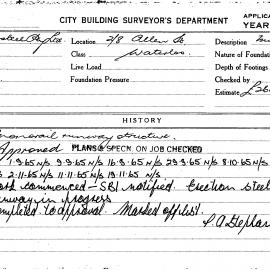 CITY BUILDING SURVEYOR'S DEPARTMENT
APPLICA
YEAR
Location 2/8 Allen St
Description
Class Waterloo
Nature of Foundation
Live Load
Depth of Footings
Foundation Pressure
Checked by
Estimate £
HISTORY
monorail runway structure.
Approved PLANS & SPECN. ON JOB CHECKED
1.9.65 N/S 9.9.65 N/S 16.9.65 N/S 29.9.65 N/S 8.10.65 N/S
2.11.65 N/S 11.11.65 N/S 19.11.65 N/S
commenced - SBI notified. Erection steel
runway in progress
completed to approval. Marked off list.